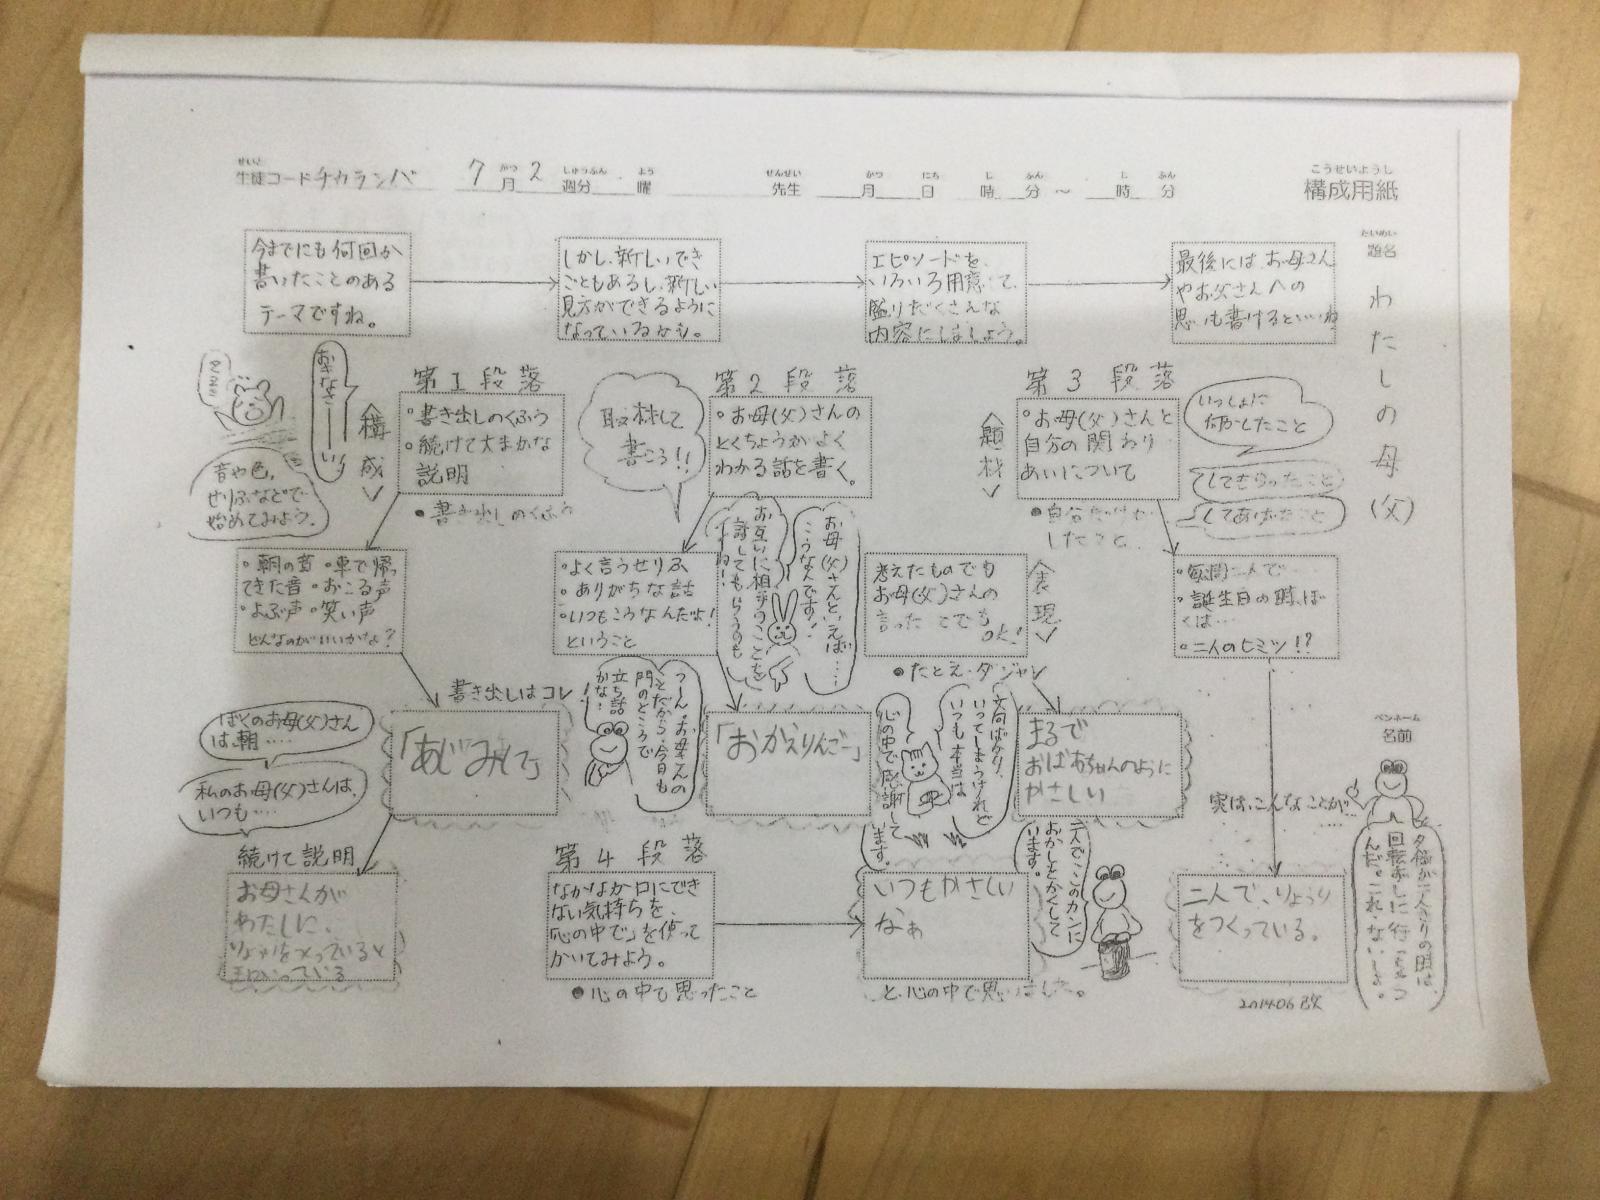 せいと
生徒コード チカランバ 7 がつ月 2 しゅうぶん週分 よう曜
せんせい先生 がつ月 にち日 じ時 ふん分 ～ じ時 ふん分
こうせいようし
構成用紙
だいめい
題名
わたしの母(父)
今までにも何回か
書いたことのある
テーマですね。
しかし、新しいでき
ごともあるし、新しい
見方ができるように
なっているかも。
エピソードを、
いろいろ用意して、
盛りだくさんな
内容にしましょう。
最後には、お母さん
やお父さんへの
思いも書けるといいね
<構成>
第1段落
・書き出しのくふう
・続けて大まかな
説明
●書き出しのくふう
おきなさーーい
音や色、
せりふなどで
始めてみよう。
・朝の音・車で帰っ
てきた音・おこる声
・よぶ声・笑い声
どんなのがいいかな?
書き出しはコレ
「あじみして」
ぼくのお母(父)さん
は、朝……
私のお母(父)さんは、
いつも……
続けて説明
お母さんが
わたしに、
<題材>
第2段落
・お母(父)さんの
とくちょうがよく
わかる話を書く。
取材して
書こう!!
・よく言うせりふ
・ありがちな話
・いつもこうなんだよ!
ということ
お母(父)さんといえば……
こうなんです!
お互いに相手のことを
話してもらうのも
うーん、お母さんの
ことだから、今日も
門のところで
立ち話
かな!
「おかえりんご〜」
第3段落
・お母(父)さんと
自分の関わり
あいについて
いっしょに
何かしたこと
してもらったこと
してあげたこと
●自分だけが
したこと
・毎週二人で……
・誕生日の時、ぼ
くは…
・二人のヒミツ!?
<表現>
考えたものでも
お母(父)さんの
言ったことでも
OK!
●たとえ・ダジャレ
まるで
おばあちゃんのように
やさしい
文句ばかり、
いってしまうけれど
いつも本当は
心の中で感謝して
います。
実は、こんなことが……
二人で、りょうり
をつくっている。
夕飯が二人きりの時は、
回転ずしに行っちゃう
んだ。これ、ないしょ。
第4段落
なかなか口にでき
ない気持ちを、
「心の中で」を使って
かいてみよう。
●心の中で思ったこと
いつもやさしい
なぁ
と、心の中で思いました。
二人でこのカンに
おかしをかくして
います。
ペンネーム
名前
2014.06改